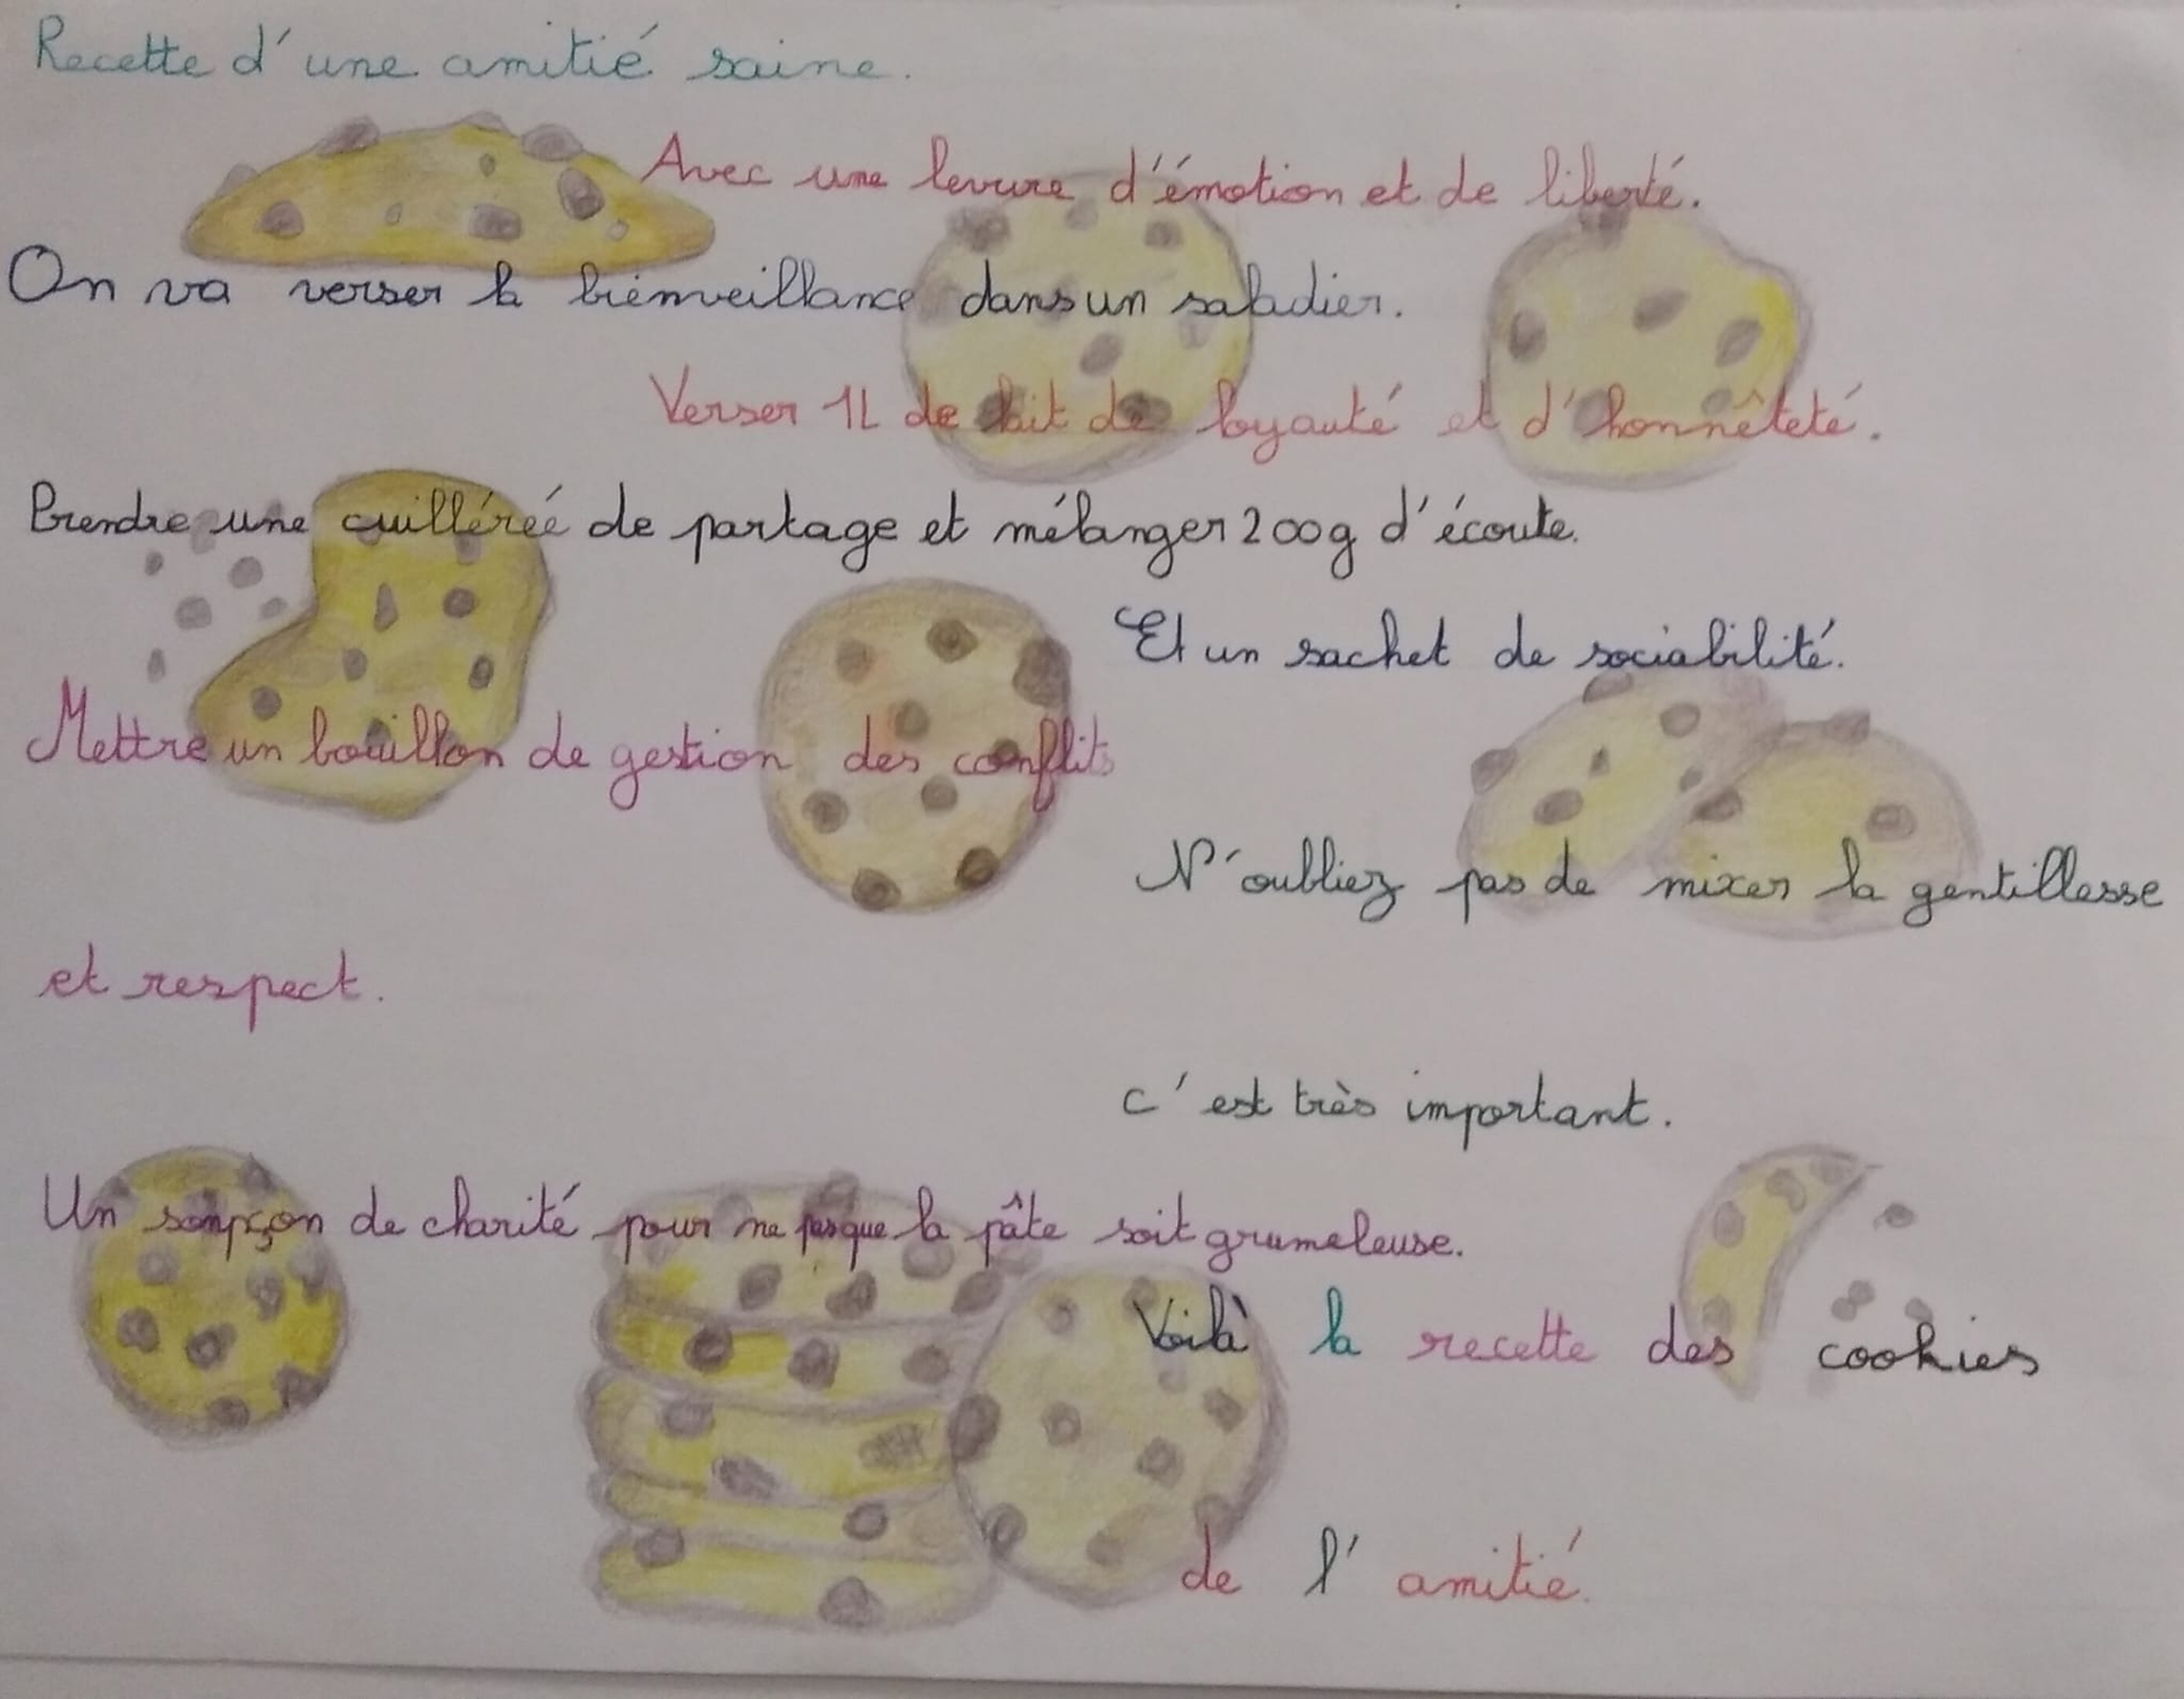 Recette d'une amitié saine.
Avec une levure d'émotion et de liberté.
On va verser la bienveillance dans un saladier.
Verser 1L de lait de loyauté et d'honnêteté.
Prendre une cuilléréé de partage et mélanger 200g d'écoute.
Et un sachet de sociabilité.
Mettre un bouillon de gestion des conflits
N'oubliez pas de mixer la gentillesse
et respect.
c'est très important.
Un soupçon de charité pour ne pas que la pâte soit grumeleuse.
Voilà la recette des cookies
de l'amitié.